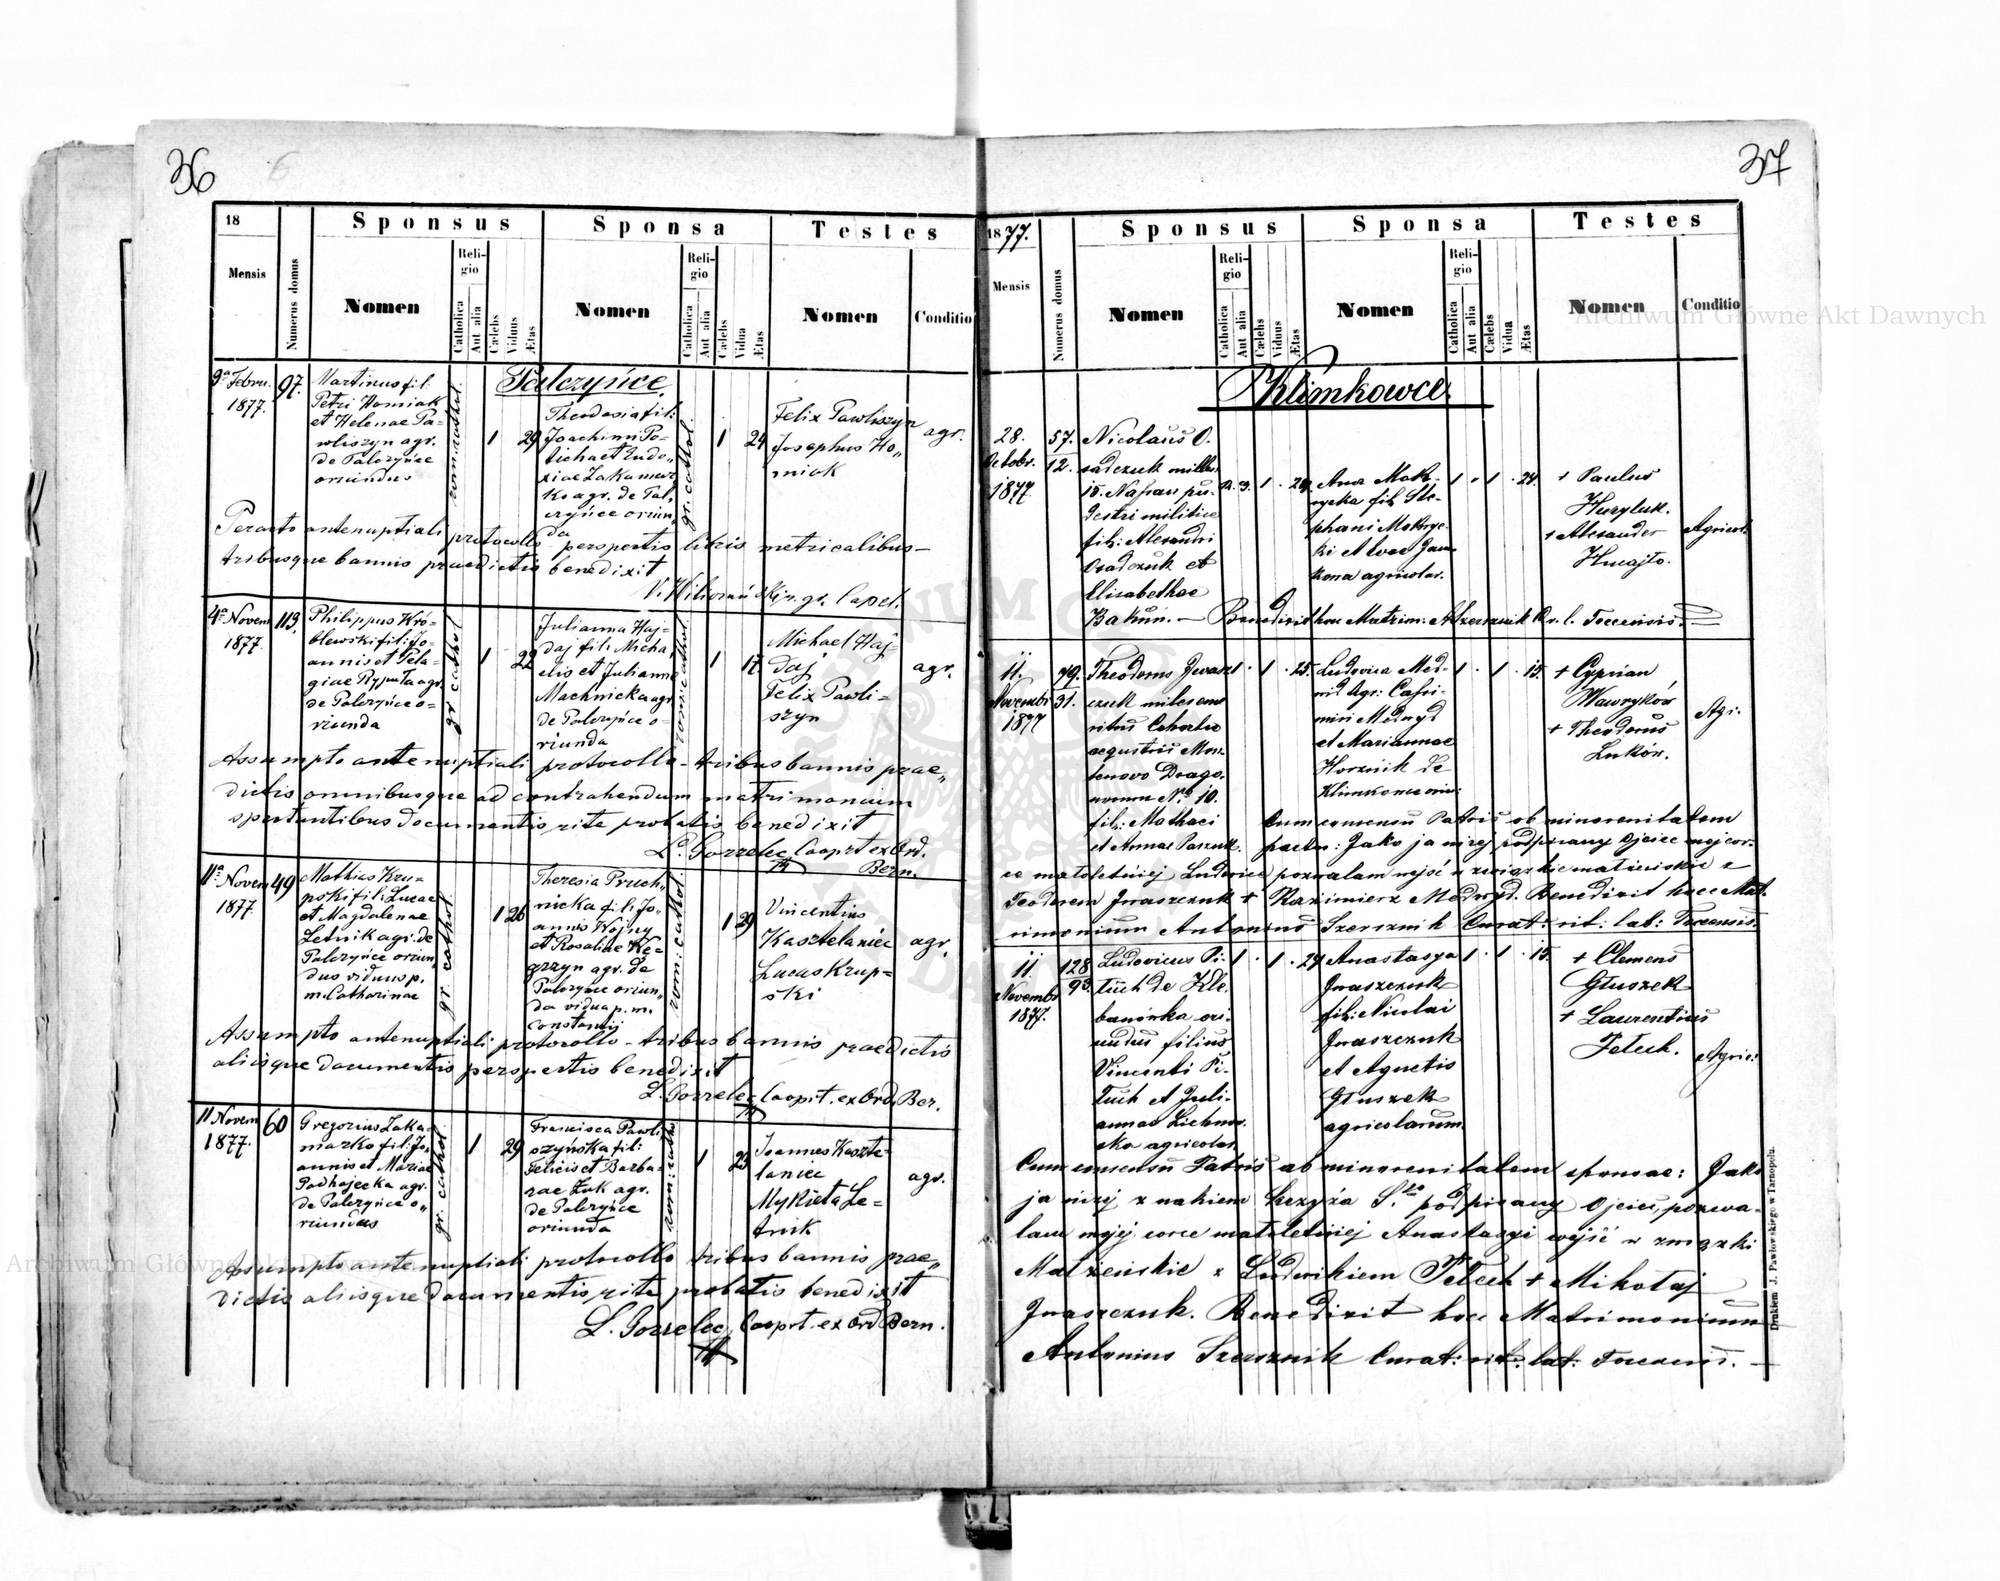 36
18
Sponsus
Sponsa
Testes
Mensis
Numerus domus
Nomen
Religio
Catholica
Aut alia
Cælebs
Viduus
Ætas
Nomen
Religio
Catholica
Aut alia
Cælebs
Vidua
Ætas
Nomen
Conditio
Palczyńce.
9a Febru.
1877.
97.
Martinus fil:
Petri Homiak
et Helenae Pa=
wliszyn agr.
de Palczyńce
oriundus
rom. cathol.
1
29
Theodosia fil:
Joachimi Po=
ticha et Eudo„
xiae Zakamar
ko agr. de Pal„
czyńce oriun„
da
gr. cathol.
1
24
Felix Pawliszyn
Josephus Ho„
miak
agr.
Peracto antenuptiali protocollo perspectis libris metricalibus
tribusque bannis praedictis benedixit
4a Novem
1877.
113.
Philippus Kró=
blewski fil: Jo=
annis et Pela=
giae Rypułta agr.
de Palczyńce o=
riunda
gr cathol
1
22
Julianna Haj=
daj fil: Micha„
elis et Julianne
Machnicka agr
de Palczyńce o=
riunda
rom: cathol.
1
17.
Michael Haj=
daj
Felix Pawli=
szyn
agr.
Assumpto antenuptiali protocollo - tribus bannis prae„
dictis omnibusque ad contrahendum matrimonium
spectantibus documentis rite probatis benedixit
L. Gorzelec Cooprt ex Ord.
Bern.
11a Novem
1877.
49
Mathias Kru=
pski fil: Lucae
et Magdalenae
Letnik agr. de
Palczyńce oriun„
dus viduus p.
m. Catharinae
gr. cathol.
1
26
Theresia Pruch„
nicka fil: Jo„
annis Wojny
et Rosaliae Kę=
grzyn agr. de
Palczyńce oriun„
da vidua p. m.
Constantij
rom: cathol.
1
29
Vincentius
Kasztelaniec
Lucas Krup=
ski
agr.
Assumpto antenuptiali protocollo - tribus bannis praedictis
aliisque documentis perspectis benedixit
L. Gorzelec Cooprt. ex Ord. Ber.
11 Novem
1877.
60
Gregorius Zaka=
marko fil: Jo„
annis et Mariae
Podhajecka agr.
de Palczyńce o„
riundus
gr. cathol
1
29
Francisca Pawli
szyńska fil:
Felicis et Barba=
rae Żuk agr.
de Palczyńce
oriunda
rom: cathol
1
23
Joannes Kaszte=
laniec
Mykieta Le=
tnik
agr.
Assumpto antenuptiali protocollo tribus bannis prae„
dictis aliisque documentis rite probatis benedixit
L. Gorzelec, Cooprt. ex Ord Bern.
37
1877.
Sponsus
Sponsa
Testes
Mensis
Numerus domus
Nomen
Religio
Catholica
Aut alia
Cælebs
Viduus
Ætas
Nomen
Religio
Catholica
Aut alia
Cælebs
Vidua
Ætas
Nomen
Conditio
Klimkowce
28.
Octobr.
1877
57.
12.
Nicolaus O.
sadczuk miles
15. Nassau pe.
destri militiae
fil: Alexandri
Osadczuk et
Elisabethae
Bakun.
1
Anna Mokr-
fil: Ste-
phani Mokrzy-
ki et
agricolar.
1
1
24.
+ Paulus
Huryluk.
+ Alexander
Hmajło.
Agricol.
Benedixit hoc Matrim: A Szersznik
11.
Novembr
1877
79.
31.
Theodorus Jwasz
czuk miles eme
ritus Cohortis
aequstris Mon-
tenovo Drago-
norum No 10.
fil: Mathaei
et Annae
1
1
25.
Ludovica Med-
wid Agr: Casi-
miri Medwyd
et Mariannae
Horznik de
Klimkowce oriu:
1
1
15.
+ Cyprian
Wawryków
+ Theodorus
Luków.
Agr.
Cum consensu Patris ob minorenitatem
Jako ja niżej podpisany Ojciec mej cór.
ce małoletniej Ludowice pozwalam wejść w związkie małżeńskie z
Teodorem Jwaszczuk + Kazimierz Medwyd. Benedixit hocce Mat.
rimonium Antonius Szersznik Curat: rit: lat: Toccensis.
11.
Novembr
1877.
128
93.
Ludovicus Pi-
tuch de Kle.
banówka ori-
undus filius
Vincenti Pi-
tuch et Juli-
annae Lichnow-
ska agricolar.
1
1
24
Anastasya
Jwaszczuk
fil: Nicolai
Jwaszczuk
et Agnetis
Głuszek
agricolarum.
1
1
15
+ Clemens
Głuszek
+ Laurentius
Petech.
Agric:
Cum consensu Patris ob minorenitatem sponsae: Jako
ja niżej znakiem krzyża S.go podpisany Ojciec, pozwa-
lam mojej corce małoletniej Anastazyi wejść w związki
Małżeńskie z Ludwikiem Petech + Mikołaj
Jwaszczuk. Benedixit hoce Matrimonium
Antonius Szersznik Curat: rit: lat: Toccens.
Drukiem J. Pawłowskiego w Tarnopolu.
Archiwum Główne Akt Dawnych
Archiwum Główne Akt Dawnych